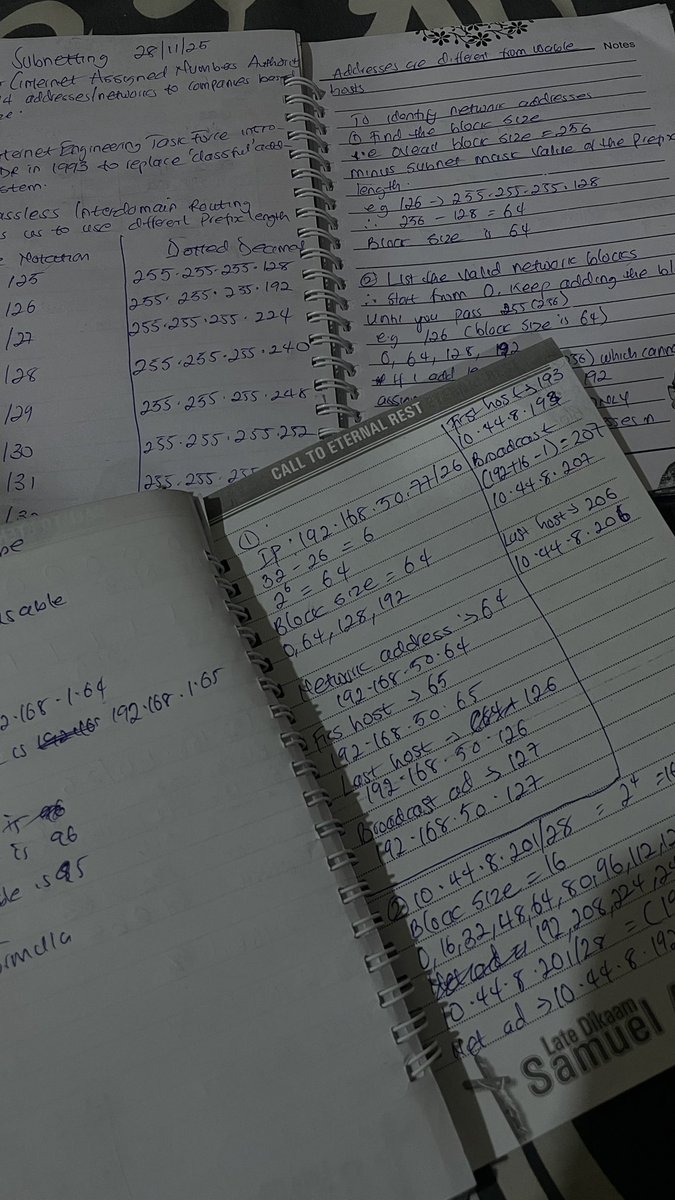 Subnetting 28/11/25
(Internet Assigned Numbers Authorit
4 addresses/networks to companies base
ternet Engineering Task Force intro-
DR in 1993 to replace classful addr
stem.
assless Interdomain Routing
s us to use different Prefix length
Notation Dotted Decimal
/25 255.255.255.128
/26 255.255.255.192
/27 255.255.255.224
/28 255.255.255.240
/29 255.255.255.248
/30 255.255.255.252
/31 255.255.255
Notes
Addresses are different from usable
hosts
To identify network addresses
① Find the block size
i.e Overall block size = 256
minus subnet mask value of the Prefix
length.
eg /26 → 255.255.255.128
∴ 256 - 128 = 64
Block size is 64
② List the valid network blocks
∴ Start from 0, keep adding the bl
Until you pass 255 (256)
e.g /26 (block size is 64)
0, 64, 128, 192
If I add
56) which cann
192
NLY
sses in
sable
2.168.1.64
is 192.168.1.65
is 96
de is 95
ormula
CALL TO ETERNAL REST
①
IP: 192.168.50.77/26
32 - 26 = 6
2⁶ = 64
Block size = 64
0, 64, 128, 192
Network address → 64
192.168.50.64
Firs host → 65
192.168.50.65
Last host → 126
192.168.50.126
Broadcast ad → 127
192.168.50.127
First host → 193
10.44.8.193
Broadcast
(192+16-1) = 207
10.44.8.207
Last host → 206
10.44.8.206
② 10.44.8.201/28 = 2⁴ = 16
Block size = 16
0, 16, 32, 48, 64, 80, 96, 112, 12
192, 208, 224, 24
10.44.8.201/28 = (19
Net ad → 10.44.8.192
Late Dikaam
Samuel